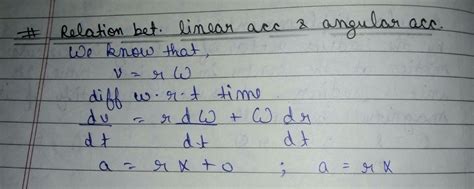 # Relation bet. linear acc & angular acc.
We know that,
v = rω
diff w.r.t time
dv/dt = r dω/dt + ω dr/dt
a = rα + 0 ; a = rα